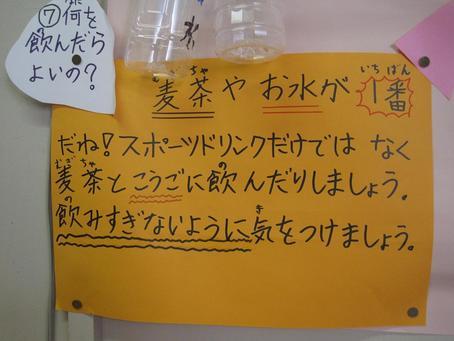 ⑦何を
飲んだら
よいの?
麦茶やお水が1番
だね!スポーツドリンクだけでは なく
麦茶とこうごに飲んだりしましょう。
飲みすぎないように気をつけましょう。